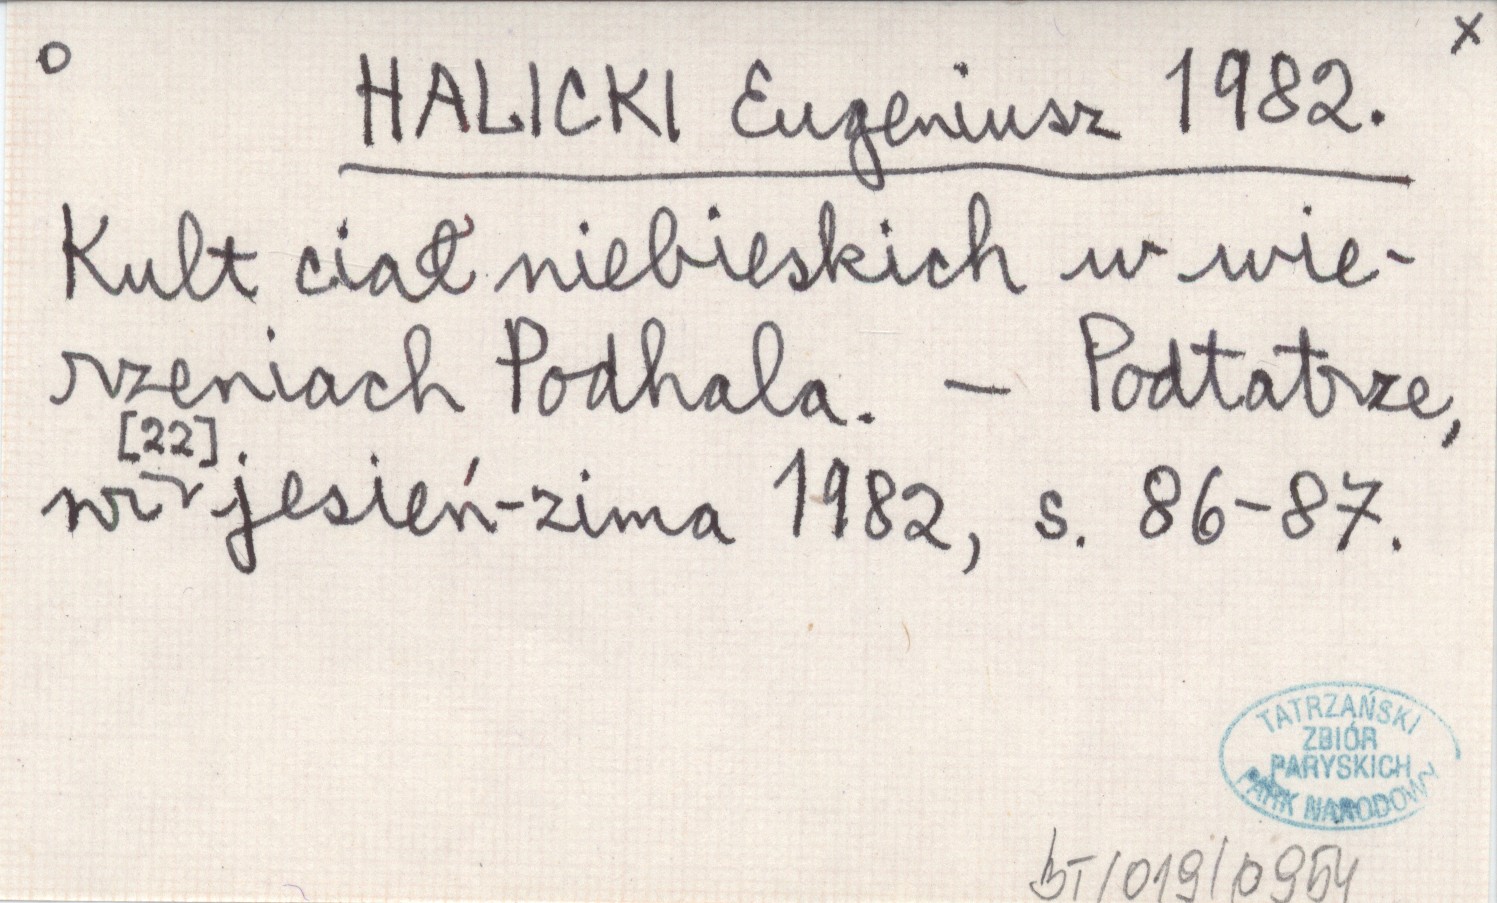 o x
HALICKI Eugeniusz 1982.
Kult ciał niebieskich w wie-
rzeniach Podhala. – Podtatrze,
[22]
nr jesień-zima 1982, s. 86-87.
TATRZAŃSKI
ZBIÓR
PARYSKICH
PARK NARODOWY
BT/019/0954